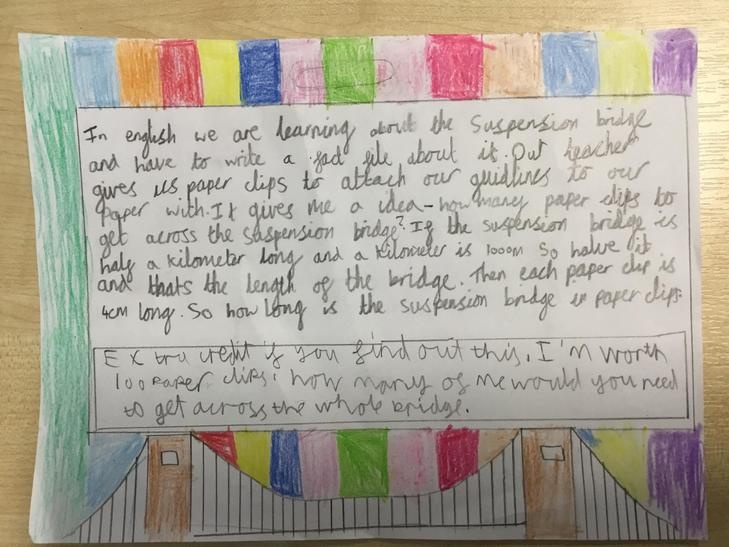 In english we are learning about the Suspension bridge
and have to write a fact file about it. Out teacher
gives us paper clips to attach our guidlines to our
Paper with. It gives me a idea - how many paper clips to
get across the suspension bridge? If the suspension bridge is
half a kilometer long and a kilometer is 1000m So halve it
and thats the length of the bridge. Then each paper clip is
4cm long. So how long is the suspension bridge in paper clips.
Extra credit if you find out this, I'm worth
100 paper clips. how many of me would you need
to get across the whole bridge.